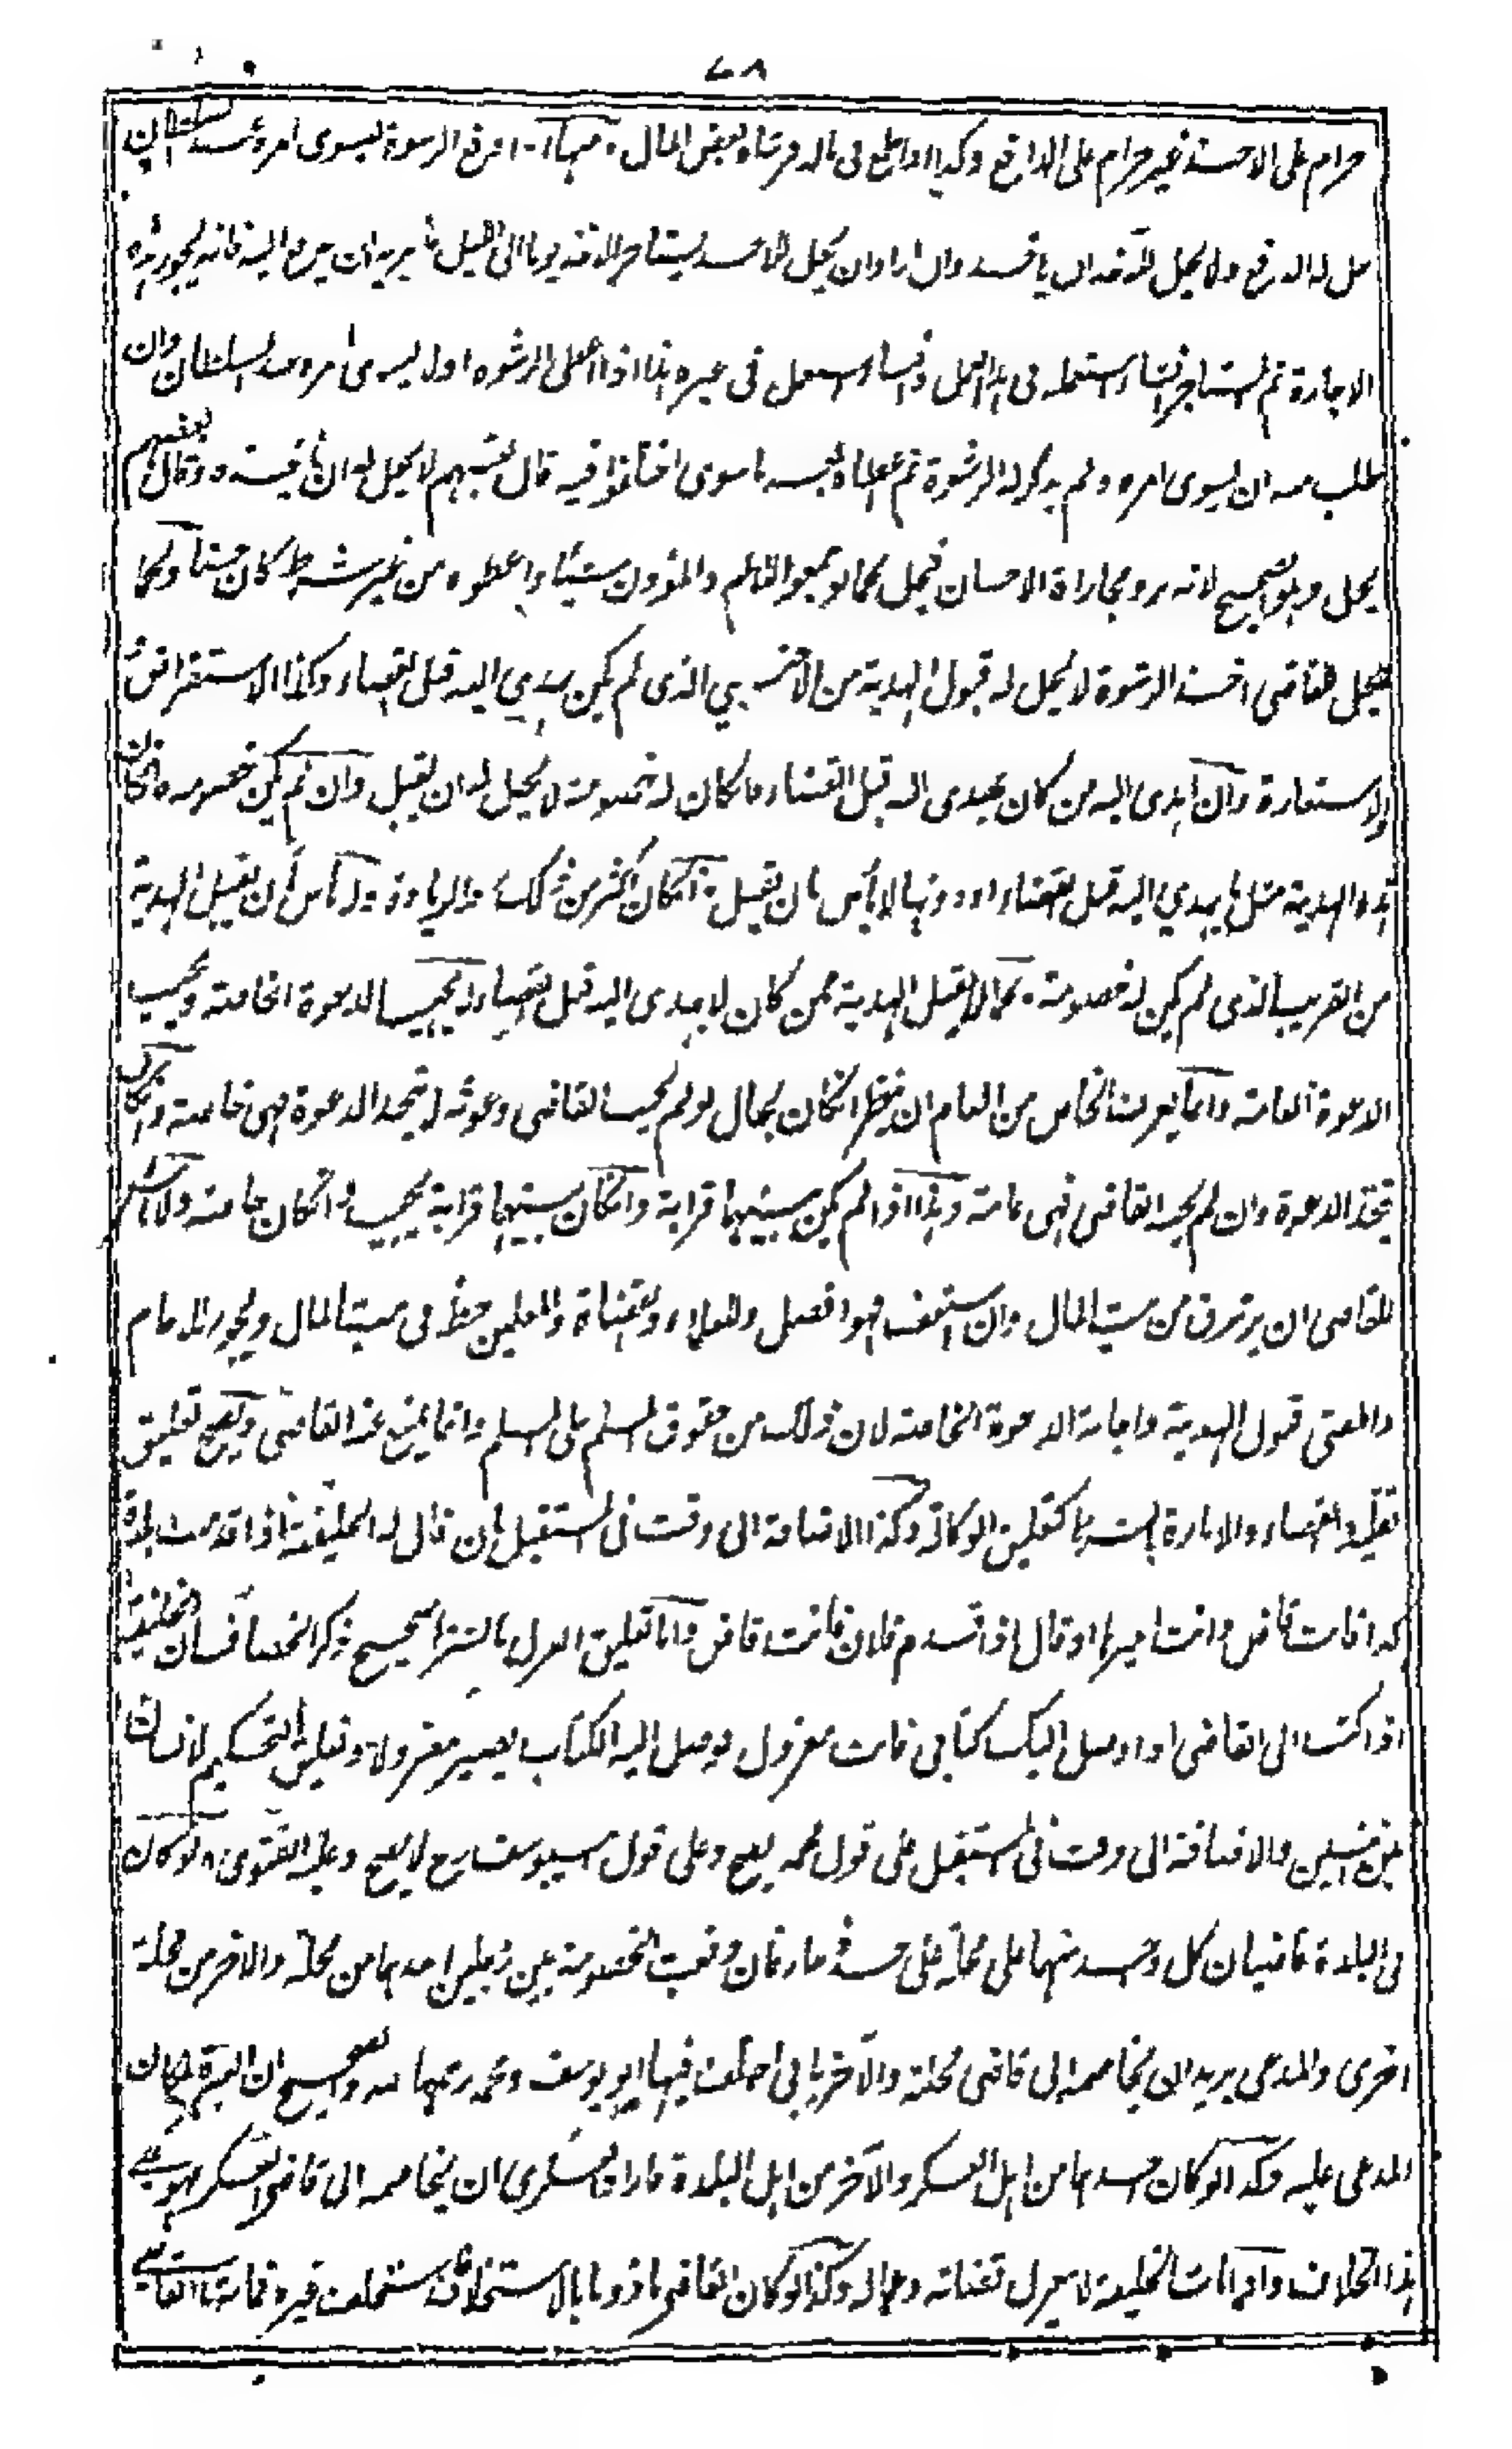 ٧٨
حرام على الاخذ غير حرام على الدافع وكذا اذا طمع في ماله فرشاه ببعض المال ومنها اذا دفع الرشوة ليسوى امره عند السلطان
حل له الدفع ولا يحل للاخذ ان ياخذ وان اراد ان يحل للاخذ يستاجر الاخذ يوما الى الليل بما يريد ان يدفع اليه فانه يجوز هذه
الاجارة ثم المستاجر ان شاء استعمله في هذا العمل وان شاء استعمل في غيره هذا اذا اعطى الرشوة اولا ليسوى امره عند السلطان وان
طلب منه ان يسوى امره ولم يذكر له الرشوة ثم اعطاه بعد ما سوى اختلفوا فيه قال بعضهم لا يحل له ان ياخذ وقال بعضهم
يحل وهو الصحيح لانه بر ومجازاة الاحسان فيحل كما لو جمعوا للامام والمؤذن شيئا واعطوه من غير شرط كان حسنا وكما
لا يحل للقاضي اخذ الرشوة لا يحل له قبول الهدية من الاجنبي الذي لم يكن يهدي اليه قبل القضاء وكذا الاستقراض
والاستعارة وان اهدى اليه من كان يهدى اليه قبل القضاء ان كان له خصومة لا يحل له ان يقبل وان لم يكن خصومة فان كان
هذه الهدية مثل ما يهدي اليه قبل القضاء او دونها لا باس بان يقبل وان كان اكثر من ذلك يرد الزيادة ولا باس ان يقبل الهدية
من القريب الذي لم يكن له خصومة وكما لا يقبل الهدية ممن كان لا يهدى اليه قبل القضاء لا يجيب الدعوة الخاصة ويجيب
الدعوة العامة وانما يعرف الخاص من العام ان ينظر ان كان بحال لو لم يجب القاضي دعوته لا يتخذ الدعوة فهي خاصة وان كان
يتخذ الدعوة وان لم يجب القاضي فهي عامة وهذا اذا لم يكن بينهما قرابة وان كان بينهما قرابة يجيب وان كان خاصة ولا باس
للقاضي ان يرتزق من بيت المال وان استعف فهو افضل وللعلماء والقضاة والمعلمين حظ في بيت المال ويجوز للامام
والمفتي قبول الهدية واجابة الدعوة الخاصة لان ذلك من حقوق المسلم على المسلم وانما يمنع عنه القاضي ويصح تعليق
تقليد القضاء والامارة بالشرط كتعليق الوكالة وكذا الاضافة الى وقت في المستقبل بان قال له الخليفة اذا قدمت بلدة
كذا فانت قاض وانت اميرها او قال اذا قدم فلان فانت قاض واما تعليق العزل بالشرط صحيح ذكر الخصاف ان الخليفة
اذا كتب الى القاضي اذا وصل اليك كتابي فانت معزول فوصل اليه الكتاب يصير معزولا وتعليق التحكيم لانسان
بين اثنين والاضافة الى وقت في المستقبل على قول محمد يصح وعلى قول ابي يوسف رح لا يصح وعليه الفتوى ولو كان
في البلدة قاضيان كل واحد منهما على محلة على حدة فارقعت الخصومة بين رجلين احدهما من محلة والاخر من محلة
اخرى والمدعي يريد ان يخاصمه الى قاضي محلته والاخر يابى اختلف فيها ابو يوسف ومحمد رحمهما الله والصحيح ان العبرة لمكان
المدعى عليه وكذا لو كان احدهما من اهل العسكر والاخر من اهل البلدة فاراد العسكري ان يخاصمه الى قاضي العسكر فهو على
هذا الخلاف واذا مات الخليفة لا ينعزل قضاته وعماله وكذا لو كان القاضي ماذونا بالاستخلاف فاستخلف غيره فمات القاضي